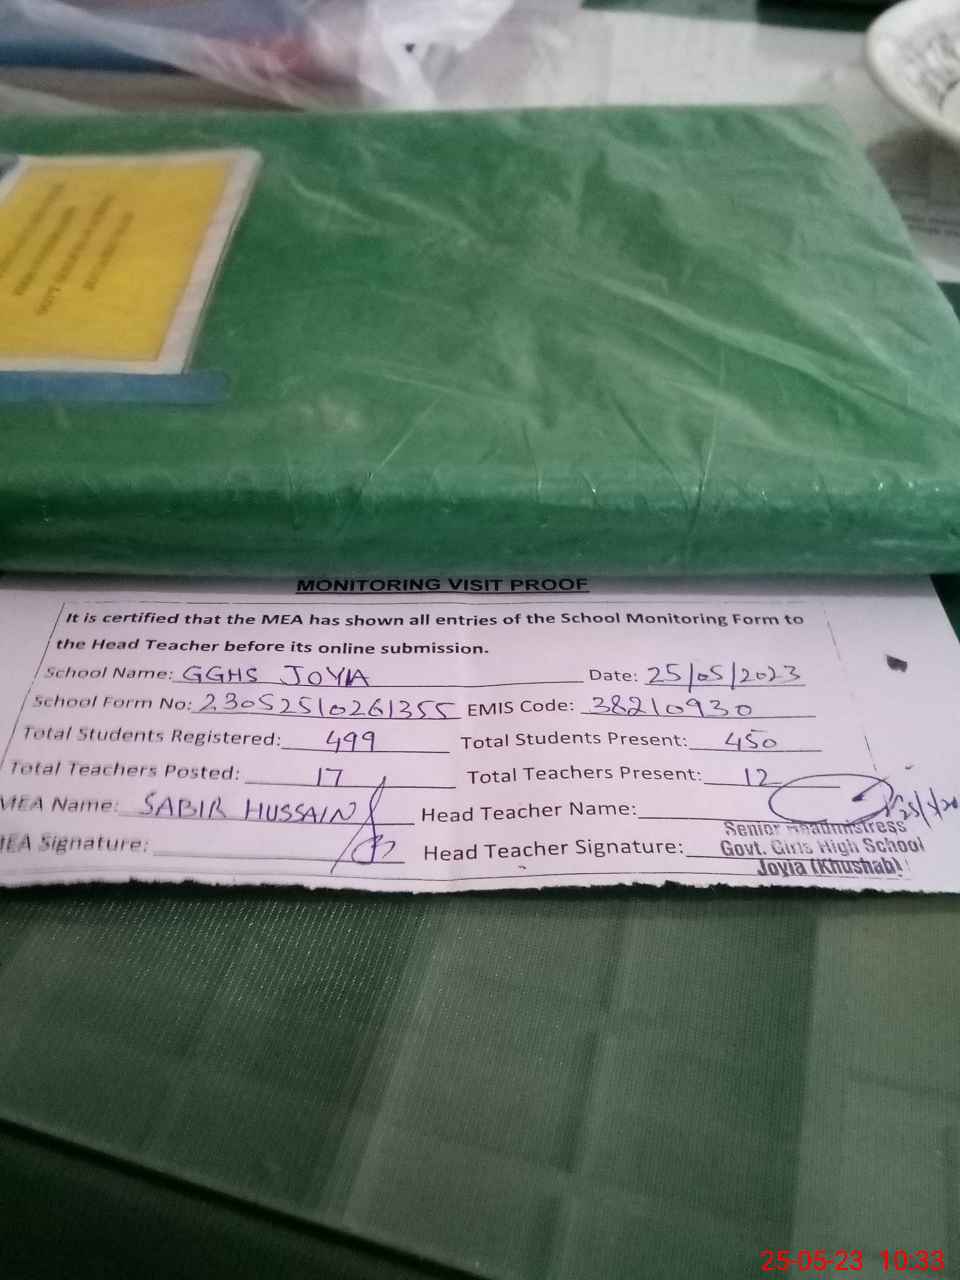 MONITORING VISIT PROOF
It is certified that the MEA has shown all entries of the School Monitoring Form to
the Head Teacher before its online submission.
School Name: GGHS JOYIA Date: 25/05/2023
School Form No: 23052510261355 EMIS Code: 38210930
Total Students Registered: 499 Total Students Present: 450
Total Teachers Posted: 17 Total Teachers Present: 12
MEA Name: SABIR HUSSAIN Head Teacher Name:
MEA Signature: Head Teacher Signature:
Senior Headmistress
Govt. Girls High School
Joyia (Khushab)
25-05-23 10:33